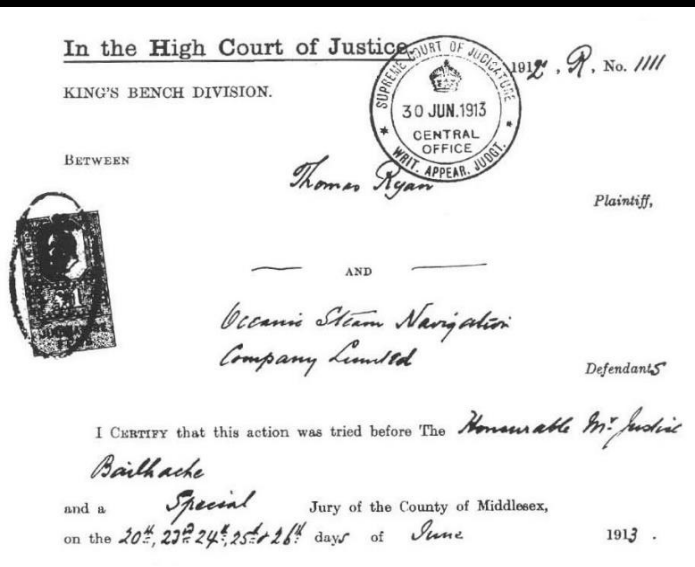 In the High Court of Justice.
1912, R, No. 1111
SUPREME COURT OF JUDICATURE
30 JUN.1913
CENTRAL
OFFICE
WRIT. APPEAR. JUDGT.
KING'S BENCH DIVISION.
BETWEEN
Thomas Ryan
Plaintiff,
AND
£1
Oceanic Steam Navigation
Company Limited
Defendants
I CERTIFY that this action was tried before The Honourable Mr. Justice
Bailhache
and a Special Jury of the County of Middlesex,
on the 20th, 23rd 24th, 25th & 26th days of June 1913.